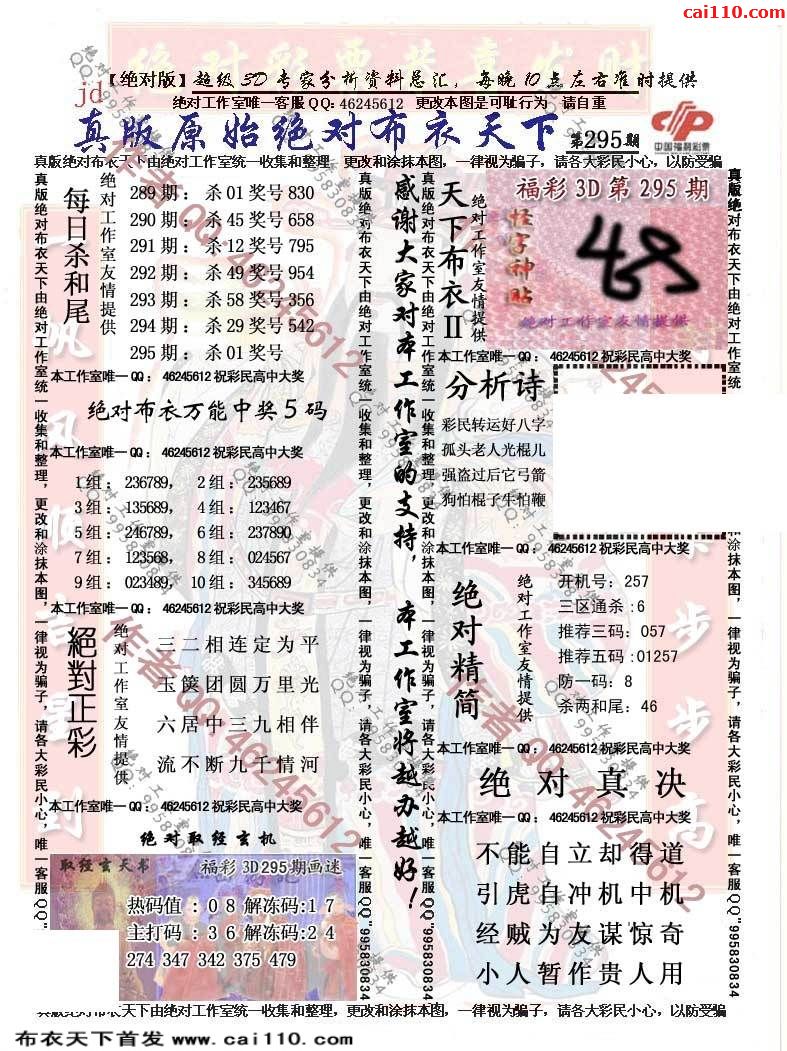 cai110.com
【绝对版】超级3D专家分析资料总汇，每晚10点左右准时提供
jd
绝对工作室唯一客服QQ: 46245612 更改本图是可耻行为 请自重
真版原始绝对布衣天下 第295期
中国福利彩票
真版绝对布衣天下由绝对工作室统一收集和整理，更改和涂抹本图，一律视为骗子，请各大彩民小心，以防受骗
每日杀和尾
绝对工作室友情提供
289期：杀01奖号830
290期：杀45奖号658
291期：杀12奖号795
292期：杀49奖号954
293期：杀58奖号356
294期：杀29奖号542
295期：杀01奖号
本工作室唯一QQ：46245612祝彩民高中大奖
绝对布衣万能中奖5码
本工作室唯一QQ：46245612祝彩民高中大奖
1组：236789， 2组：235689
3组：135689， 4组：123467
5组：246789， 6组：237890
7组：123568， 8组：024567
9组：023489， 10组：345689
本工作室唯一QQ：46245612祝彩民高中大奖
絕對正彩
绝对工作室友情提供
三二相连定为平
玉箧团圆万里光
六居中三九相伴
流不断九千情河
本工作室唯一QQ：46245612祝彩民高中大奖
绝对取经玄机
取经玄天书
福彩3D295期画迷
热码值：08解冻码:17
主打码：36解冻码:24
274 347 342 375 479
感谢大家对本工作室的支持，本工作室将越办越好！
天下布衣II
绝对工作室友情提供
福彩3D第295期
怪字神贴
绝对工作室友情提供
本工作室唯一QQ：46245612祝彩民高中大奖
分析诗
彩民转运好八字
孤头老人光棍儿
强盗过后它弓箭
狗怕棍子牛怕鞭
本工作室唯一QQ：46245612祝彩民高中大奖
绝对精简
绝对工作室友情提供
开机号：257
三区通杀:6
推荐三码：057
推荐五码:01257
防一码：8
杀两和尾：46
本工作室唯一QQ：46245612祝彩民高中大奖
绝对真决
本工作室唯一QQ：46245612祝彩民高中大奖
不能自立却得道
引虎自冲机中机
经贼为友谋惊奇
小人暂作贵人用
真版绝对布衣天下由绝对工作室统一收集和整理，更改和涂抹本图，一律视为骗子，请各大彩民小心，唯一客服QQ"995830834
真版绝对布衣天下由绝对工作室统一收集和整理，更改和涂抹本图，一律视为骗子，请各大彩民小心，唯一客服QQ"995830834
真版绝对布衣天下由绝对工作室统一收集和整理，更改和涂抹本图，一律视为骗子，请各大彩民小心，唯一客服QQ"995830834
真版绝对布衣天下由绝对工作室统一收集和整理，更改和涂抹本图，一律视为骗子，请各大彩民小心，以防受骗
布衣天下首发 www.cai110.com